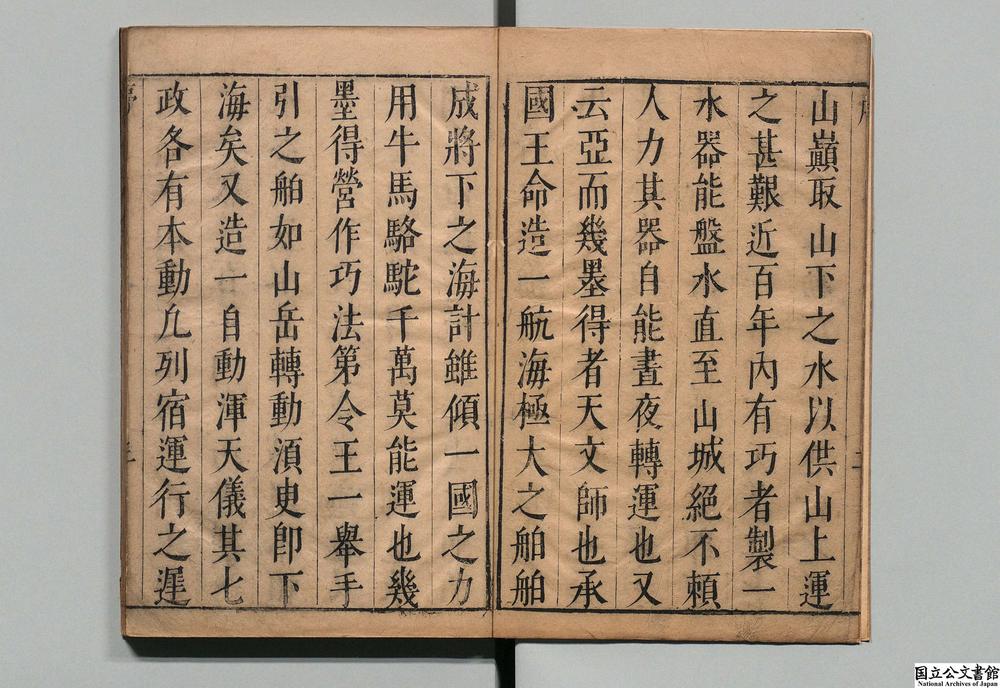 山巔取山下之水以供山上運
之甚艱近百年內有巧者製一
水器能盤水直至山城絕不賴
人力其器自能晝夜轉運也又
云亞而幾墨得者天文師也承
國王命造一航海極大之舶舶
成將下之海計雖傾一國之力
用牛馬駱駝千萬莫能運也幾
墨得營作巧法第令王一舉手
引之舶如山岳轉動須臾卽下
海矣又造一自動渾天儀其七
政各有本動凢列宿運行之遲
国立公文書館
National Archives of Japan